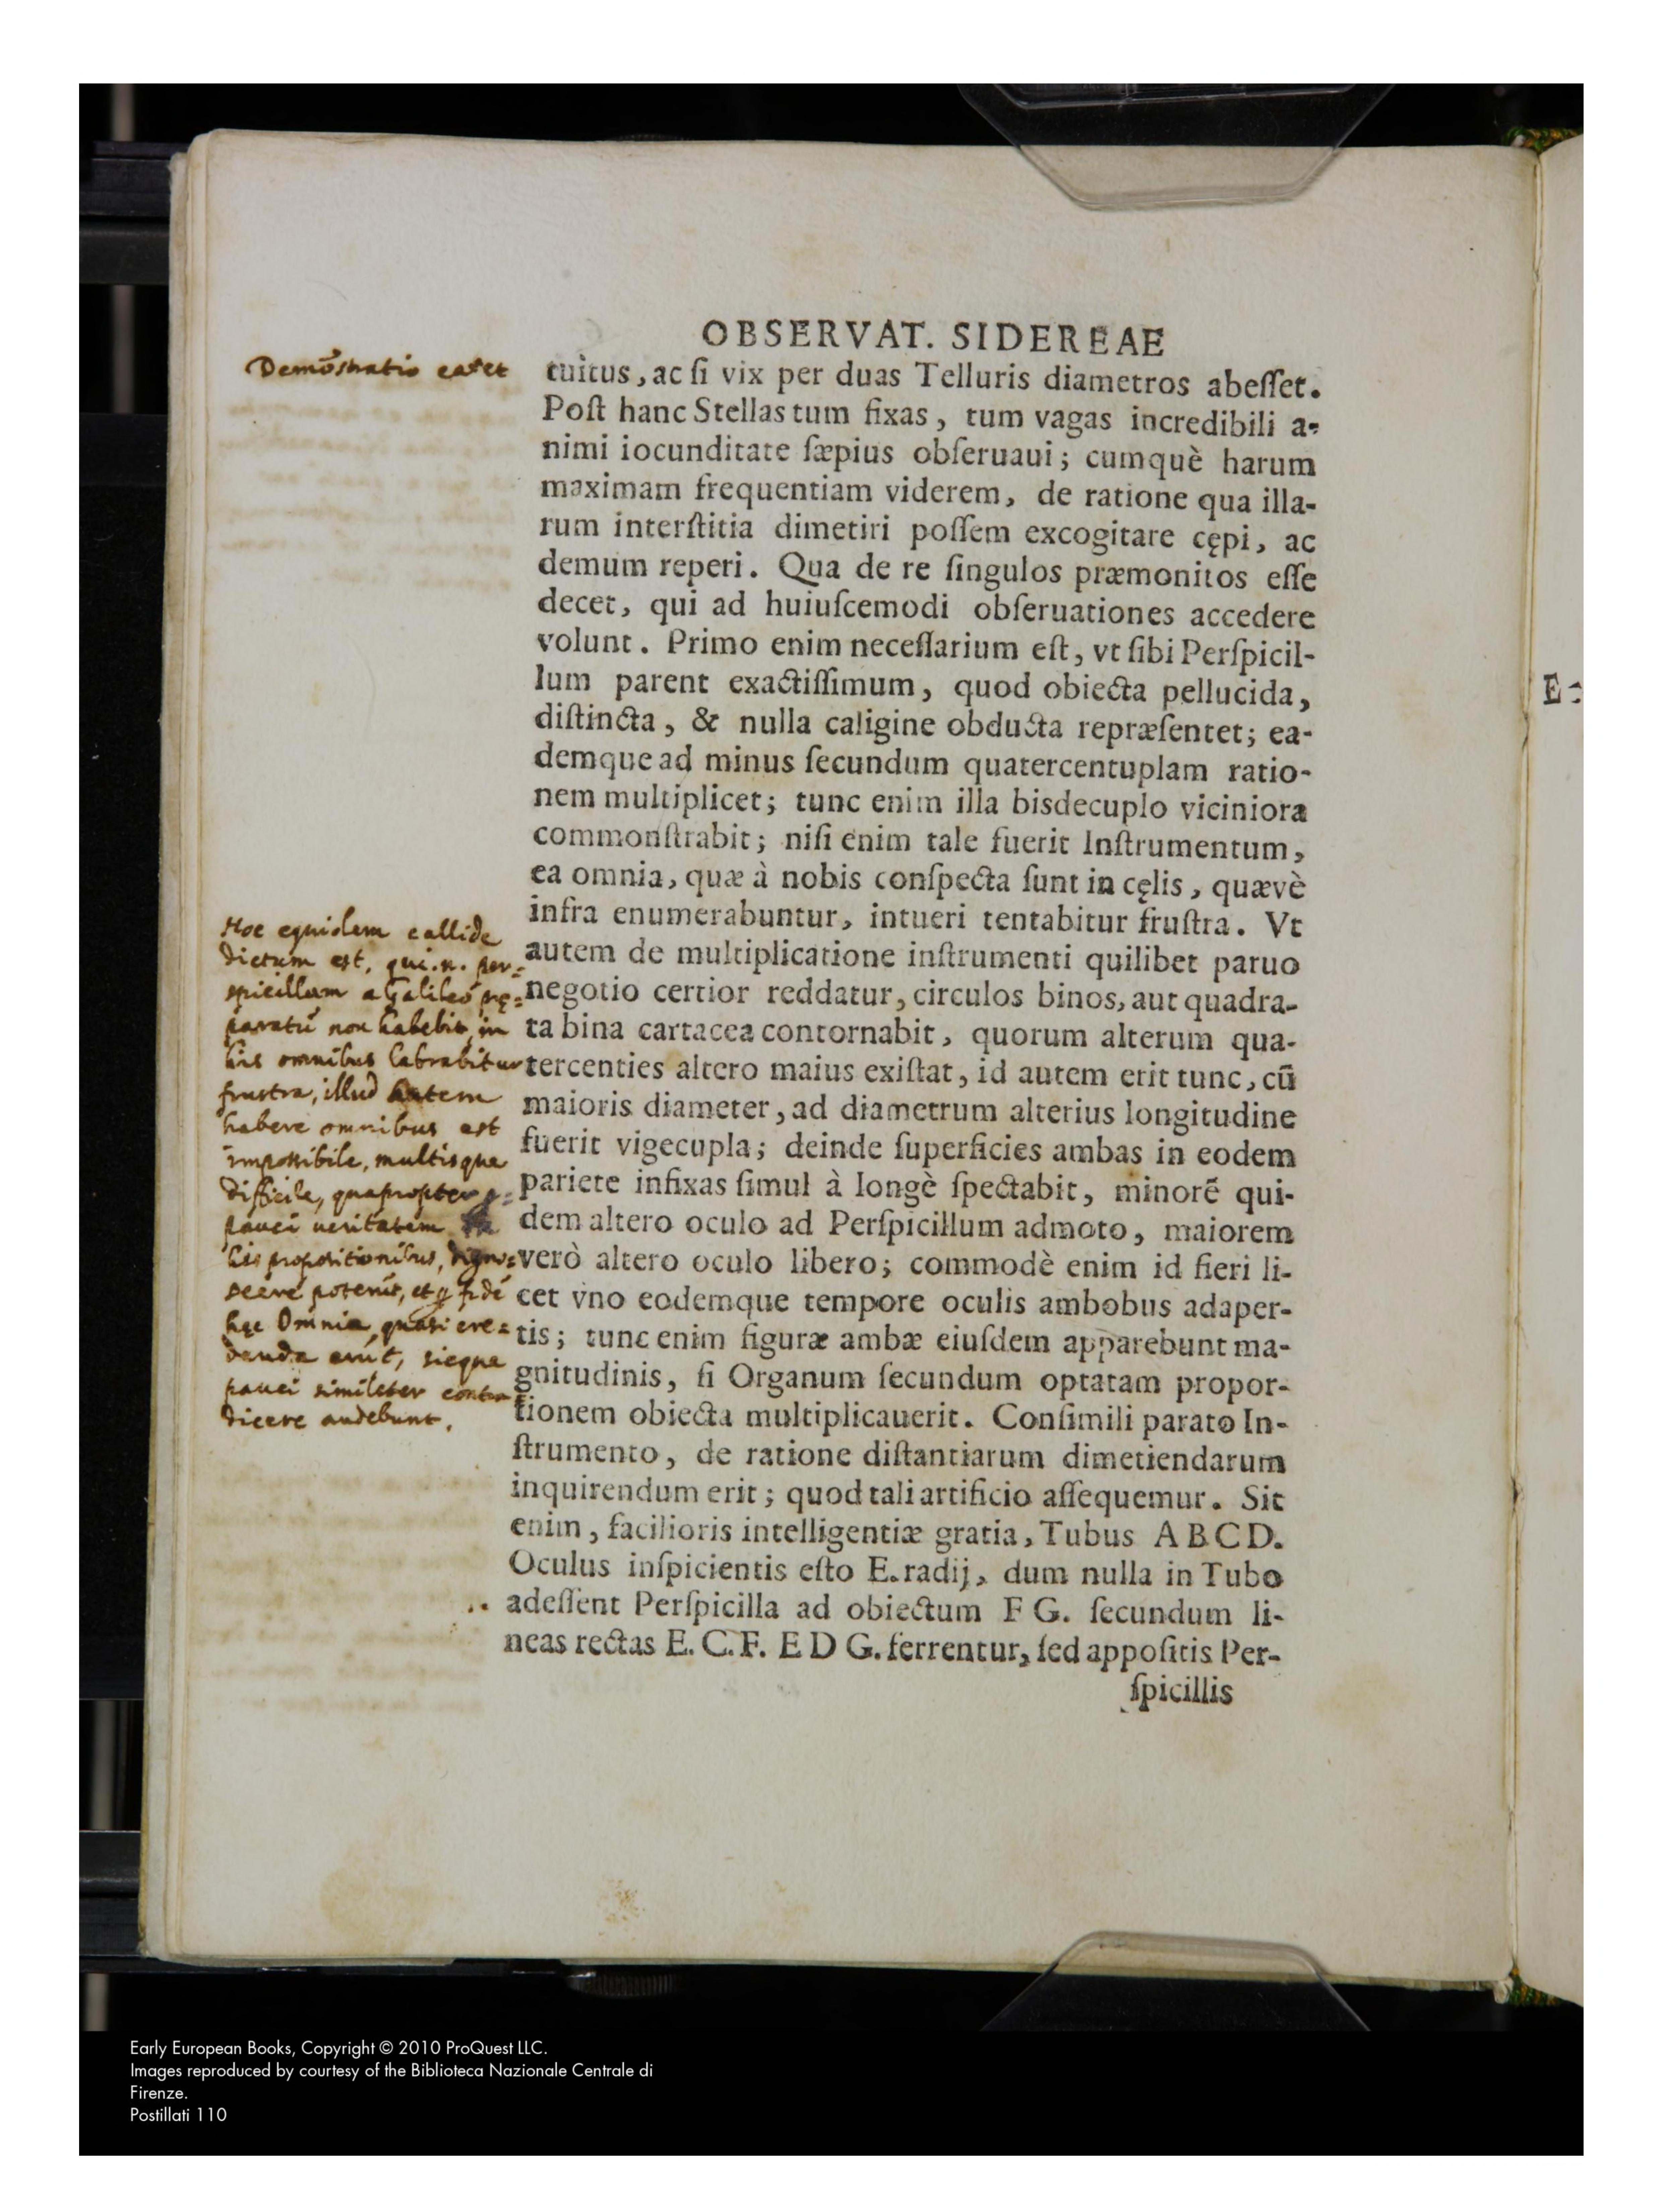 OBSERVAT. SIDEREAE
tuitus, ac ſi vix per duas Telluris diametros abeſſet.
Poſt hanc Stellas tum fixas, tum vagas incredibili a-
nimi iocunditate ſæpius obſeruaui; cumquè harum
maximam frequentiam viderem, de ratione qua illa-
rum interſtitia dimetiri poſſem excogitare cępi, ac
demum reperi. Qua de re ſingulos præmonitos eſſe
decet, qui ad huiuſcemodi obſeruationes accedere
volunt. Primo enim neceſſarium eſt, vt ſibi Perſpicil-
lum parent exactiſſimum, quod obiecta pellucida,
diſtincta, & nulla caligine obducta repræſentet; ea-
demque ad minus ſecundum quatercentuplam ratio-
nem multiplicet; tunc enim illa bisdecuplo viciniora
commonſtrabit; niſi enim tale fuerit Inſtrumentum,
ea omnia, quæ à nobis conſpecta ſunt in cęlis, quævè
infra enumerabuntur, intueri tentabitur fruſtra. Vt
autem de multiplicatione inſtrumenti quilibet paruo
negotio certior reddatur, circulos binos, aut quadra-
ta bina cartacea contornabit, quorum alterum qua-
tercenties altero maius exiſtat, id autem erit tunc, cū
maioris diameter, ad diametrum alterius longitudine
fuerit vigecupla; deinde ſuperficies ambas in eodem
pariete infixas ſimul à longè ſpectabit, minorē qui-
dem altero oculo ad Perſpicillum admoto, maiorem
verò altero oculo libero; commodè enim id fieri li-
cet vno eodemque tempore oculis ambobus adaper-
tis; tunc enim figuræ ambæ eiuſdem apparebunt ma-
gnitudinis, ſi Organum ſecundum optatam propor-
tionem obiecta multiplicauerit. Conſimili parato In-
ſtrumento, de ratione diſtantiarum dimetiendarum
inquirendum erit; quod tali artificio aſſequemur. Sit
enim, facilioris intelligentiæ gratia, Tubus A B C D.
Oculus inſpicientis eſto E. radij, dum nulla in Tubo
adeſſent Perſpicilla ad obiectum F G. ſecundum li-
neas rectas E. C. F. E D G. ferrentur, ſed appoſitis Per-
ſpicillis
Demōstratio
Hoc equidem callide
dictum est, qui .n. per=
spicillum a Galileo prę=
paratū non habebit, in
his omnibus labrabitur
frustra, illud autem
habere omnibus est
impossibile, multisque
difficile, quapropter
pauci veritatem
his propositionibus, digno=
scere potenūt, et
hęc Omnia, quasi cre=
denda erūt, sicque
pauci similiter contra
dicere audebunt.
E
Early European Books, Copyright © 2010 ProQuest LLC.
Images reproduced by courtesy of the Biblioteca Nazionale Centrale di
Firenze.
Postillati 110